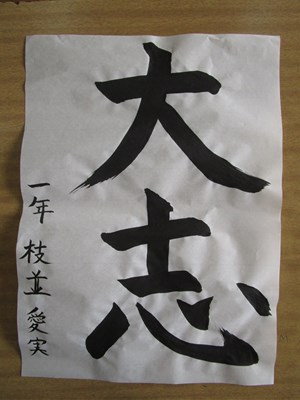 大志
一年 枝並 愛実